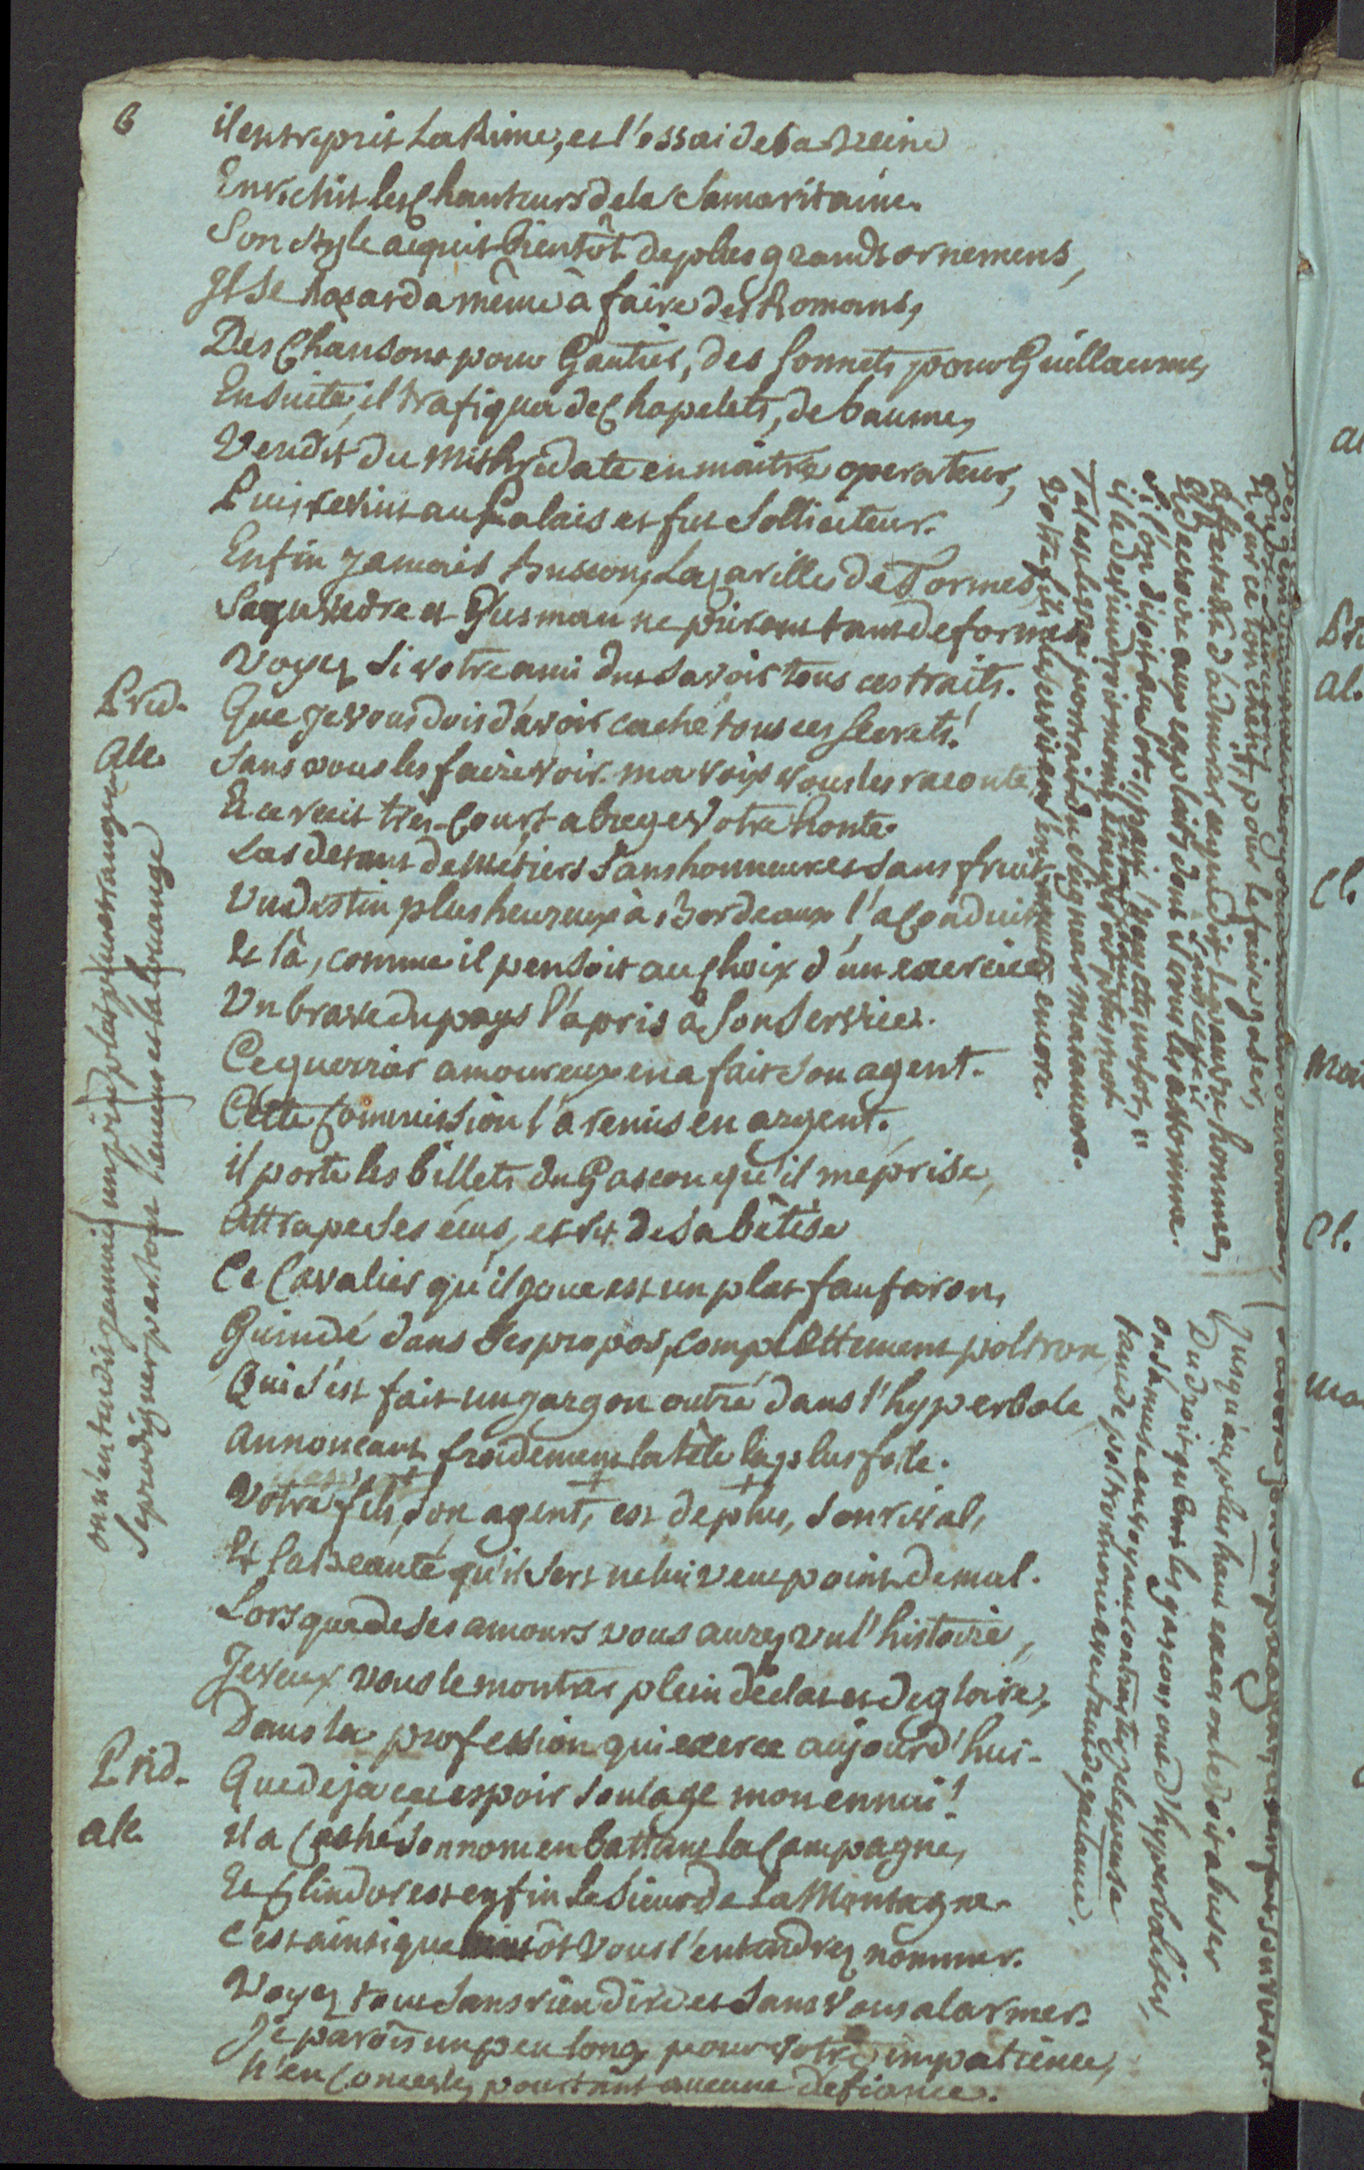 6
il entreprit La Rime, et l'essai de sa Veine
Enrichit les Chanteurs de la Samaritaine.
Son style acquit bientôt de plus grands ornemens,
Il se hazarda même à faire des Romans,
Des Chansons pour Gautier, des Sonnets pour Guillaume,
Ensuite, il trafiqua de Chapelets, de baume,
Vendit du Mithridate en maître operateur,
Puis revint au Palais et fut Solliciteur.
Enfin jamais Buscon, Lazarille de Tormes,
Sayavedre et Gusman ne prirent tant de formes.
Voyez si votre ami dut savoir tous ces traits.
Prid. Que je vous dois d'avoir caché tous ces secrets!
Alc. Sans vous les faire voir ma voix vous les raconte,
Et ce recit très-court abrege votre honte.
Las de tant de métiers sans honneur et sans fruit,
Un destin plus heureux à Bordeaux l'a conduit
Et là, comme il pensoit au choix d'un exercice,
Un brave du pays l'a pris à son service.
Ce guerrier amoureux en a fait son agent.
Cette Commission l'a remis en argent.
il porte les billets du Gascon qu'il méprise,
Attrape ses écus, et rit de sa bêtise
Ce Cavalier qu'il joue est un plat fanfaron,
Guindé dans ses propos, complettement poltron,
Qui s'est fait un jargon outré dans l'hyperbole
Annonçant froidement la tête la plus folle.
Votre fils, son agent, est de plus, son rival,
Et la Beauté qu'il sert ne lui veut point de mal.
Lorsque de ses amours vous aurez vu l'histoire,
Je veux vous le montrer plein d'éclat et de gloire,
Dans la profession qui exerce aujourd'hui.
Prid. Que deja cet espoir soulage mon ennui!
alc. Il a Caché son nom en battant la Campagne,
Et Clindor est enfin le Sieur de La Montagne.
C'est ainsi que bientôt vous l'entendrez nommer.
Voyez tout sans rien dire et sans vous alarmer.
Je parois un peu long pour votre impatience,
N'en concevez pourtant aucune défiance.
on n'entendit jamais un si plat
se prodiguer par tout l'encens et la louange
sur ce ton, pour le faire jaser,
affectent d'admirer ce que dit le pauvre homme,
Et de croire aux exploits dont il vous les assomme.
il le deviendroit moins
Tel est le vrai portrait du Seigneur matamore.
Votre fils le sert encore.
Jusqu'au plus haut excès on le doit abuser
Du droit qu'ont les gascons d'hyperboliser,
on s'amuse en voyant contraster
tant de poltronnerie avec tant de jactance.